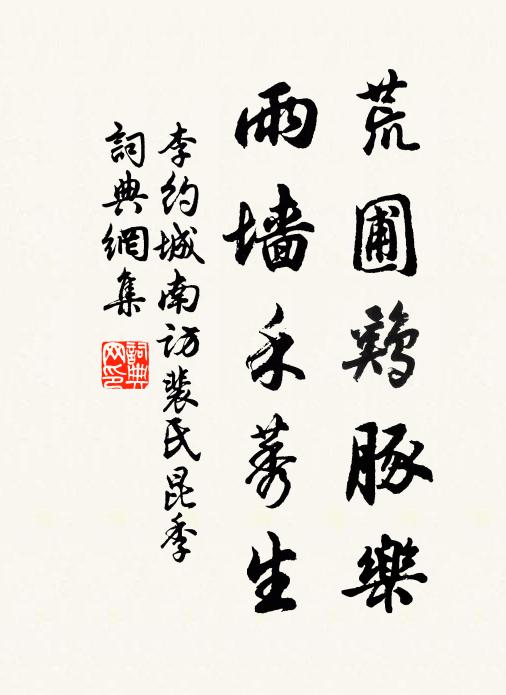 荒圃鷄豚樂
雨墻禾莠生
李約城南访裴氏昆季
詞典網集
詞典
网印